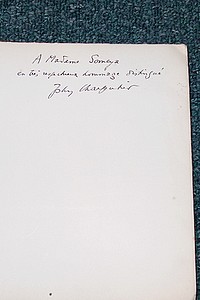 A Madame Someya
en très respectueux hommage distingué
John Charpentier